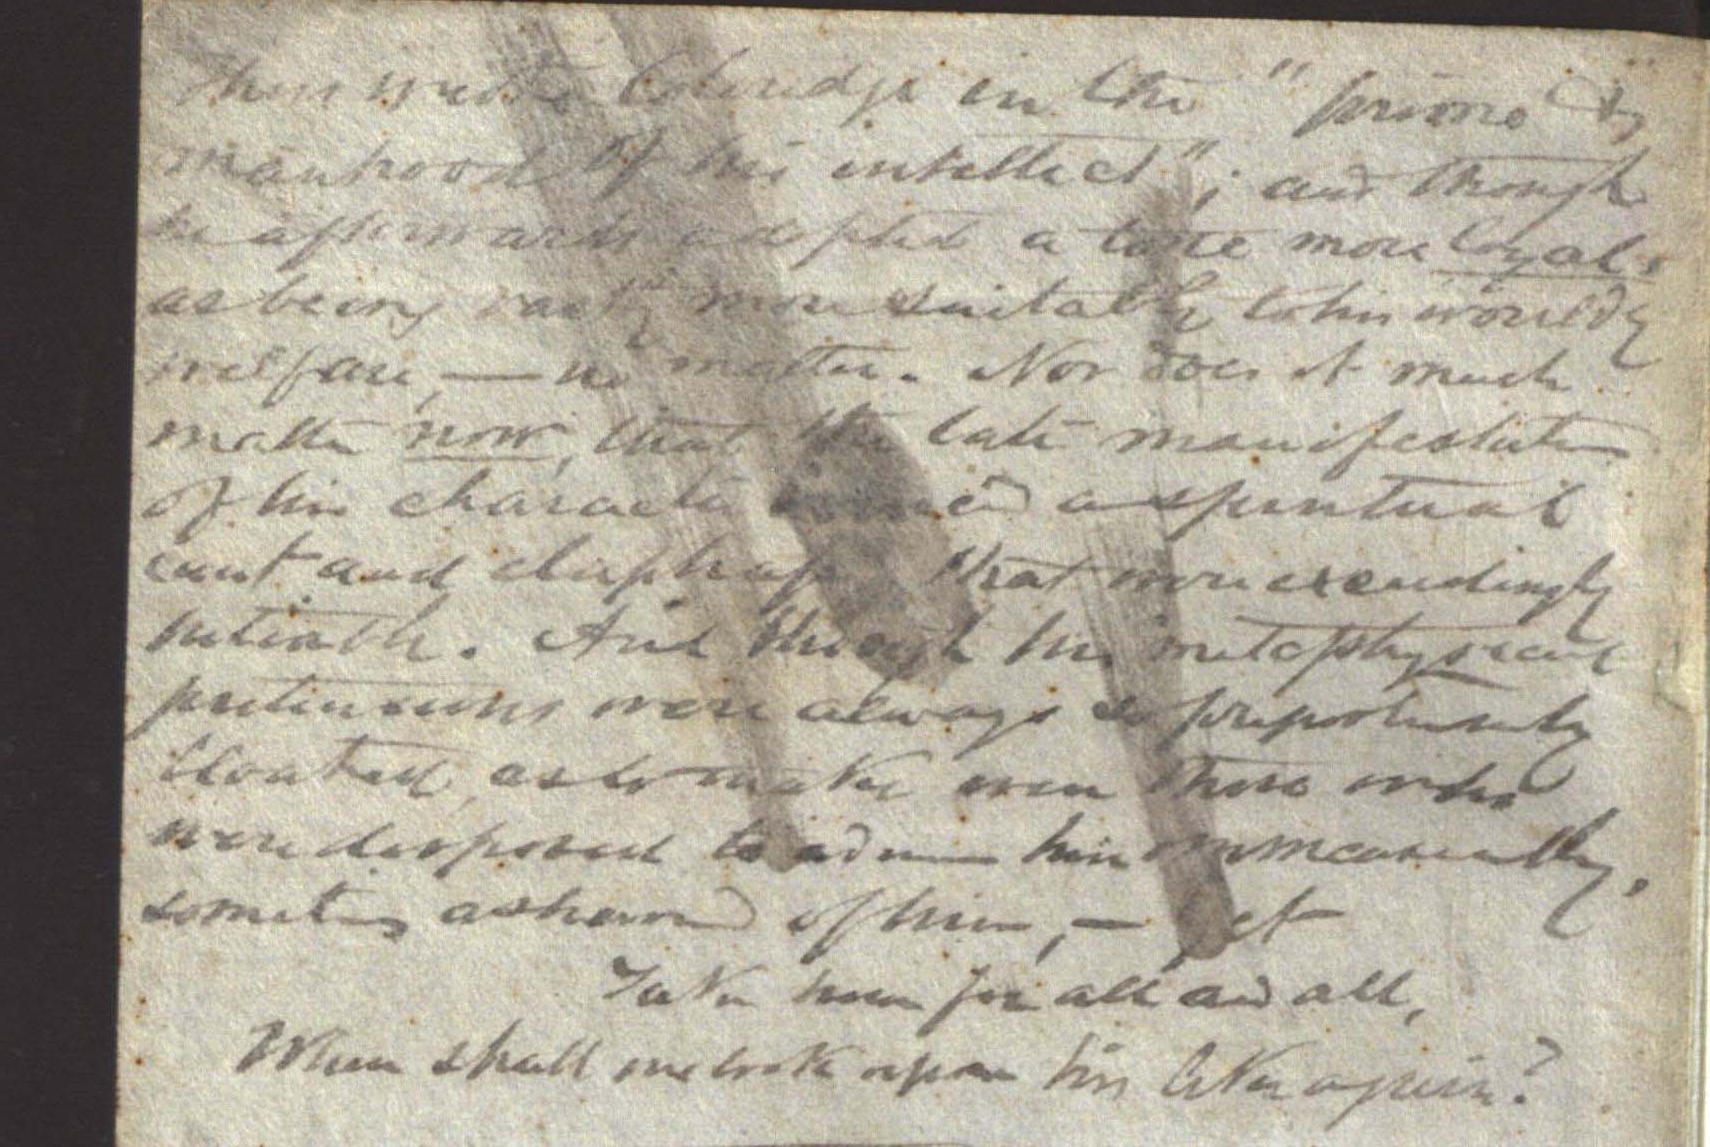 Thus wrote Coleridge in the "prime &
manhood of his intellect"; and though
he afterwards adopted a tone more loyal,
as being vastly more suitable to his worldly
welfare, — no matter. Nor does it much
matter now, that the late manifestation
of his character evinced a spiritual
cant and claptrap that were exceedingly
pitiable. And though his metaphysical
pretensions were always so preposterously
bloated, as to make even those who
were disposed to admire him immeasurably,
sometimes ashamed of him, — yet
Take him for all and all,
When shall we look upon his like again?